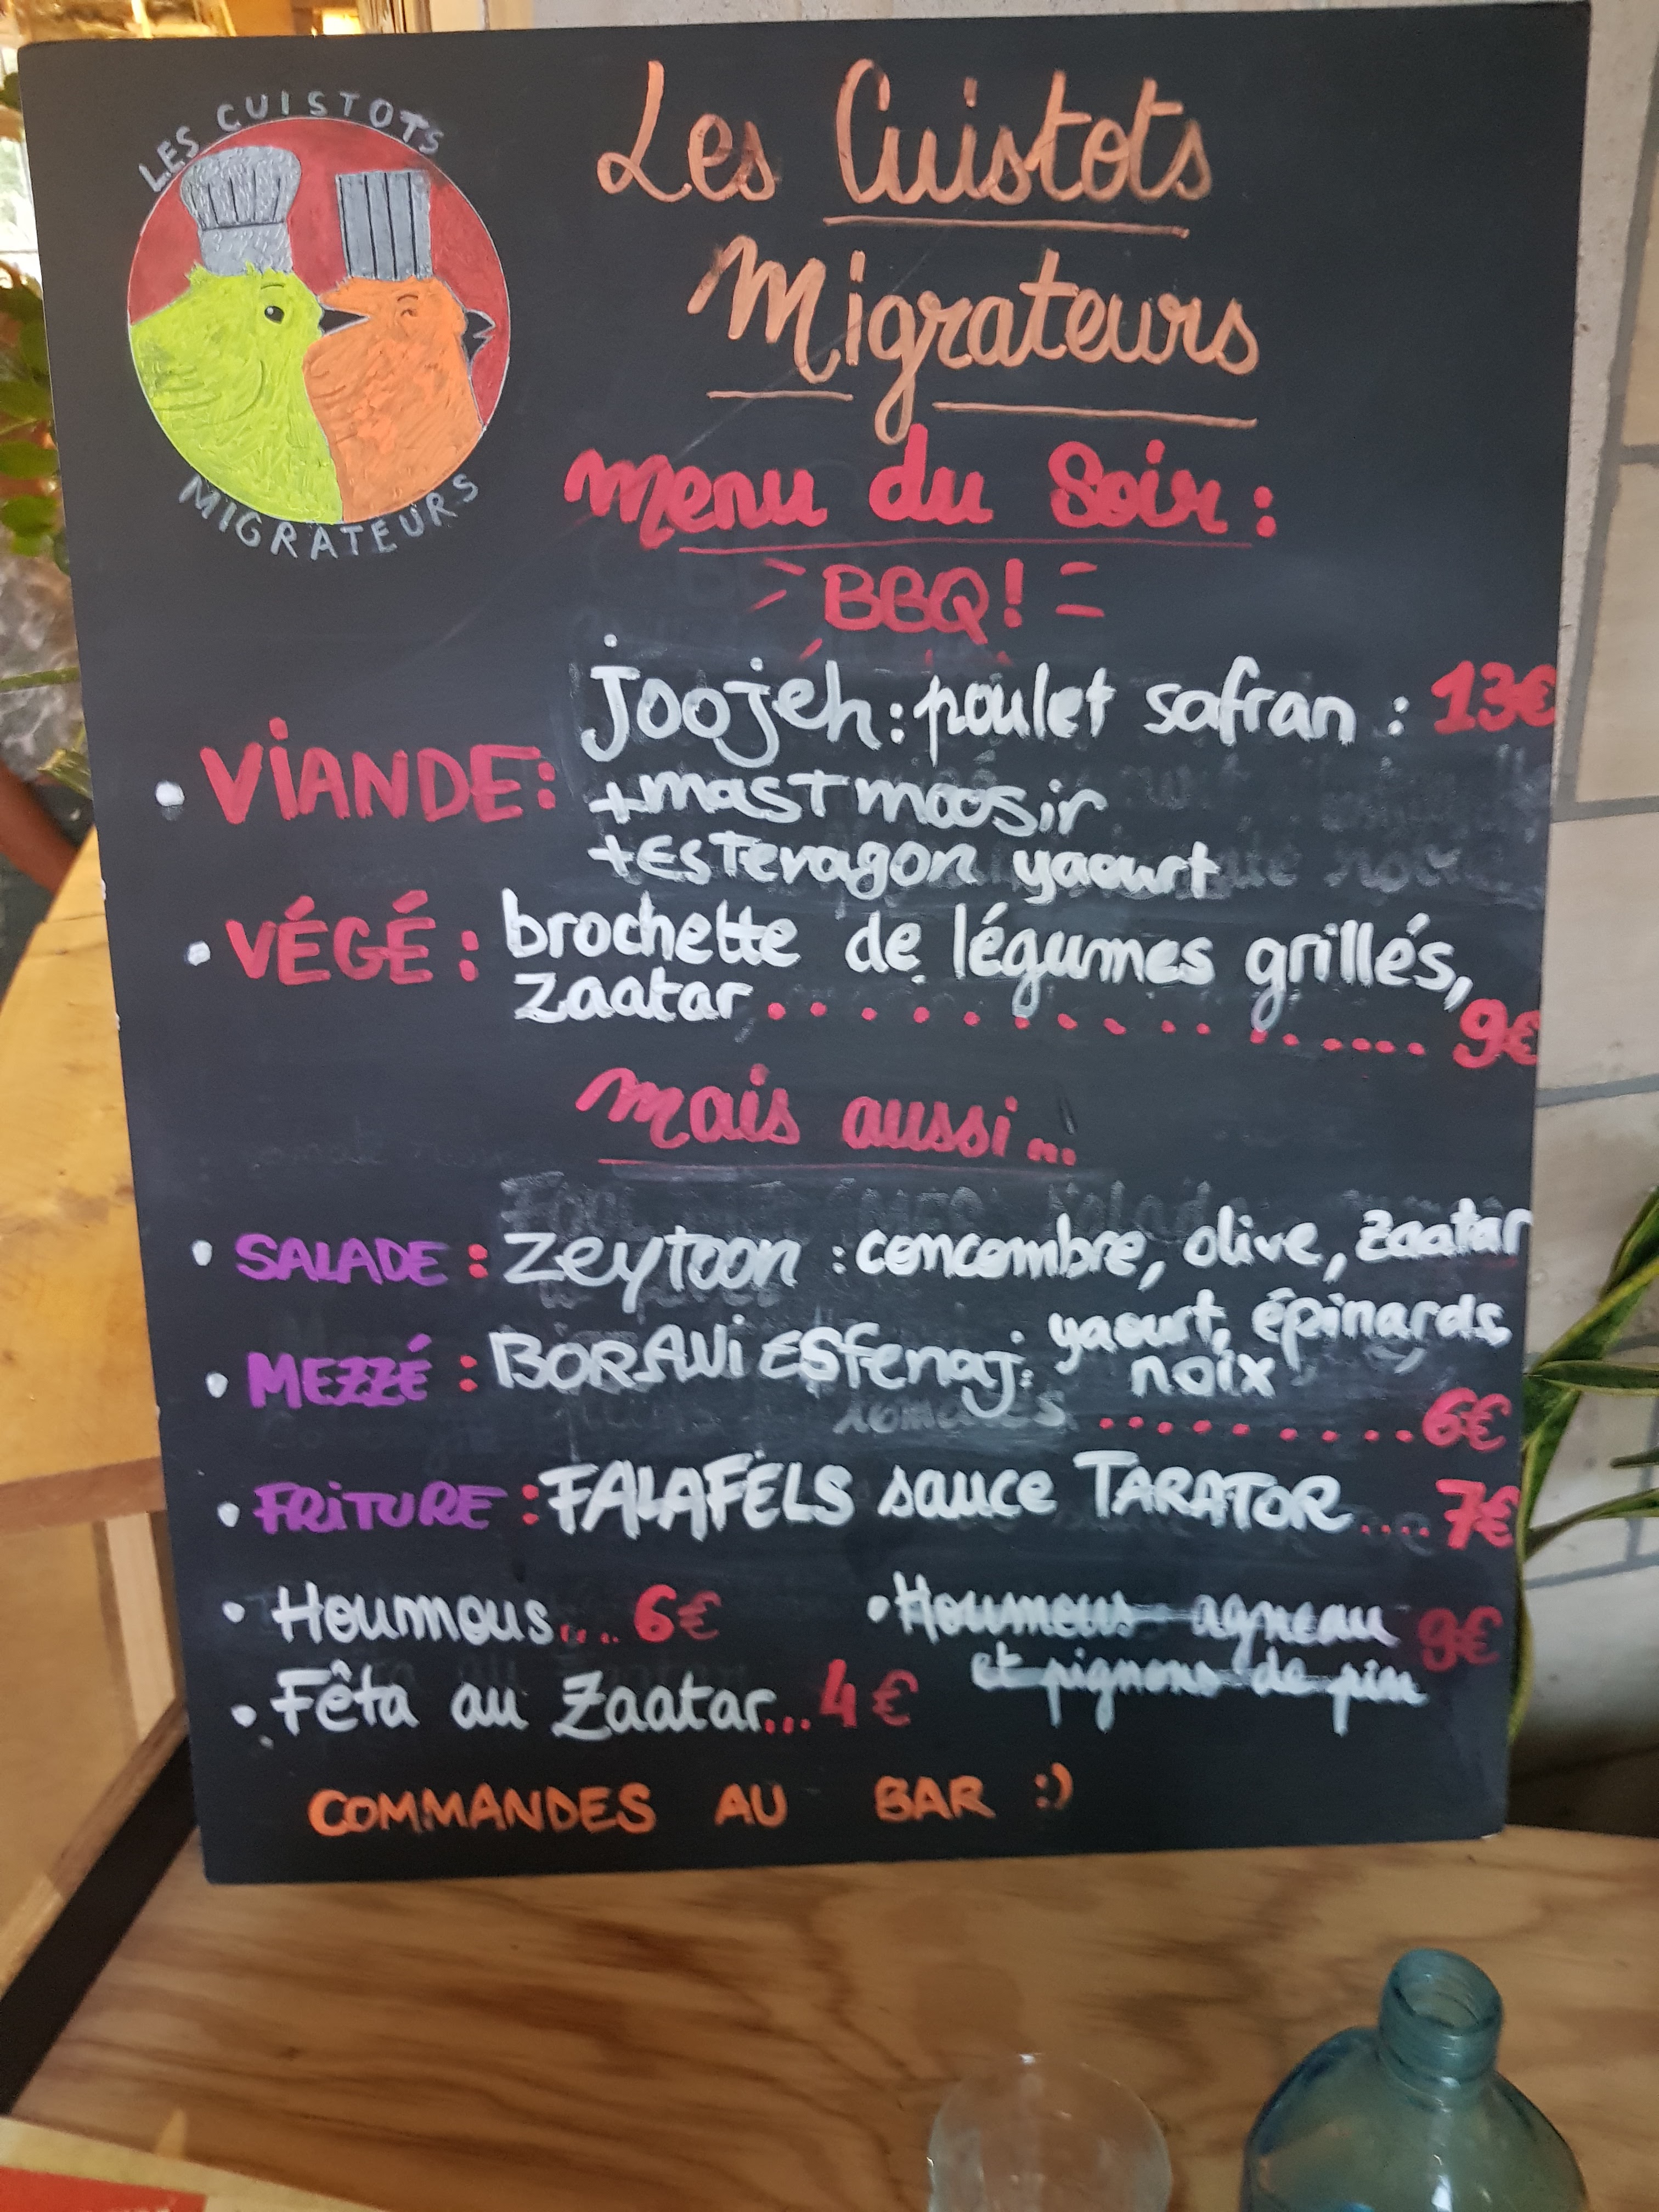 LES CUISTOTS
MIGRATEURS
Les Cuistots
Migrateurs
Menu du Soir :
BBQ !
• VIANDE : Joojeh : poulet safran : 13€
+mast moosir
+Esteragon yaourt
• VÉGÉ : brochette de légumes grillés,
Zaatar .................. 9€
Mais aussi...
• SALADE : Zeytoon : concombre, olive, zaatar
• MEZZÉ : BORANi ESfenaj : yaourt, épinards,
noix
.......... 6€
• FRiTURE : FALAFELS sauce TARATOR .... 7€
• Houmous... 6€ • Houmous agneau 9€
et pignons de pin
• Fêta au Zaatar... 4€
COMMANDES AU BAR :)